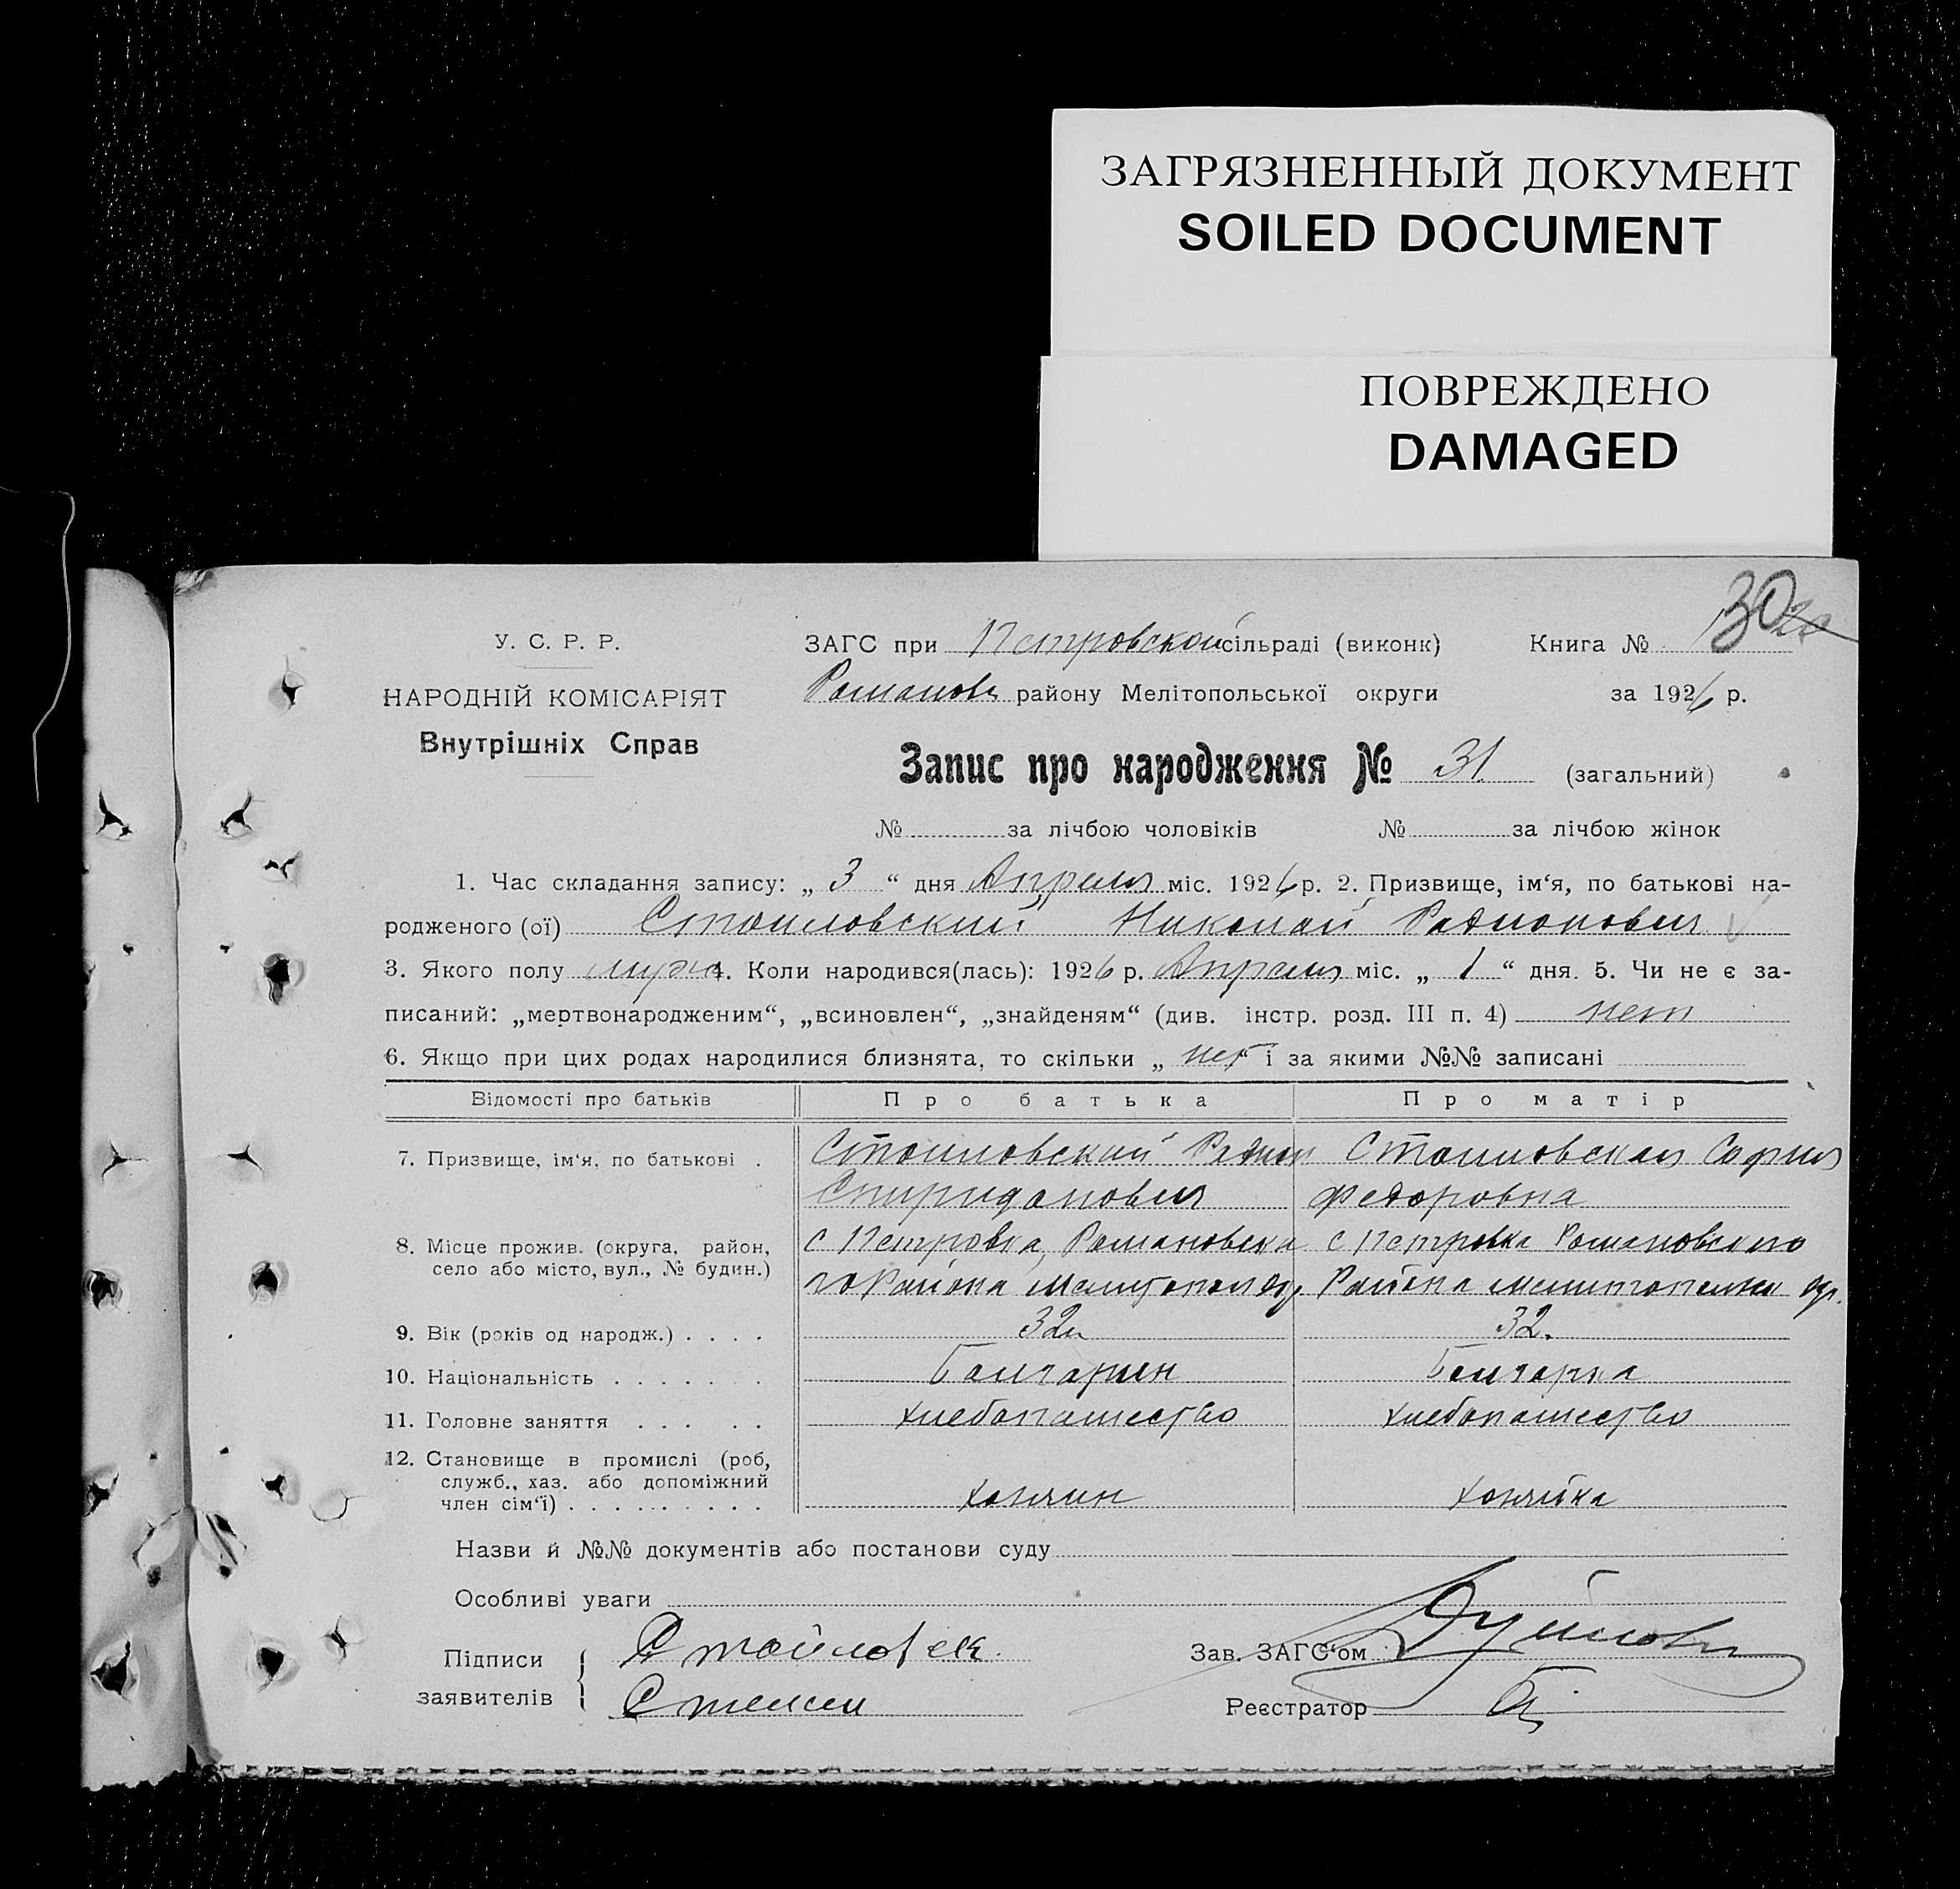 ЗАГРЯЗНЕННЫЙ ДОКУМЕНТ
SOILED DOCUMENT
ПОВРЕЖДЕНО
DAMAGED
30
У. С. Р. Р.
НАРОДНІЙ КОМІСАРІЯТ
Внутрішніх Справ
ЗАГС при Петровской сільраді (виконк) Книга №
Романовск району Мелітопольської округи за 1926 р.
Запис про народження № 31 (загальний)
№ за лічбою чоловіків № за лічбою жінок
1. Час складання запису: „ 3 “ дня Апреля міс. 1926 р. 2. Призвище, ім‘я, по батькові на-
родженого (ої) Стоиловский Николай Радионович
3. Якого полу муж 4. Коли народився(лась): 1926 р. Апреля міс. „ 1 “ дня. 5. Чи не є за-
писаний: „мертвонародженим“, „всиновлен“, „знайденям“ (див. інстр. розд. III п. 4) нет
6. Якщо при цих родах народилися близнята, то скільки „ нет “ і за якими №№ записані
Відомості про батьків Про батька Про матір
7. Призвище, ім‘я, по батькові . Стоиловский Радион Стоиловская София
Спиридонович Федоровна
8. Місце прожив. (округа, район, с Петровка, Романовска с Петровка Романовского
село або місто, вул., № будин.) го Района Мелитопол окр. Района мелитопольск окр.
9. Вік (років од народж.) . . . . 32 32.
10. Національність . . . . . . . Болгарин Болгарка
11. Головне заняття . . . . . хлебопашество хлебопашество
12. Становище в промислі (роб,
служб., хаз. або допоміжний
член сім‘ї) . . . . . . . . . хозяин хозяйка
Назви й №№ документів або постанови суду
Особливі уваги
Підписи Стойловск. Зав. ЗАГС‘ом
заявителів Реєстратор